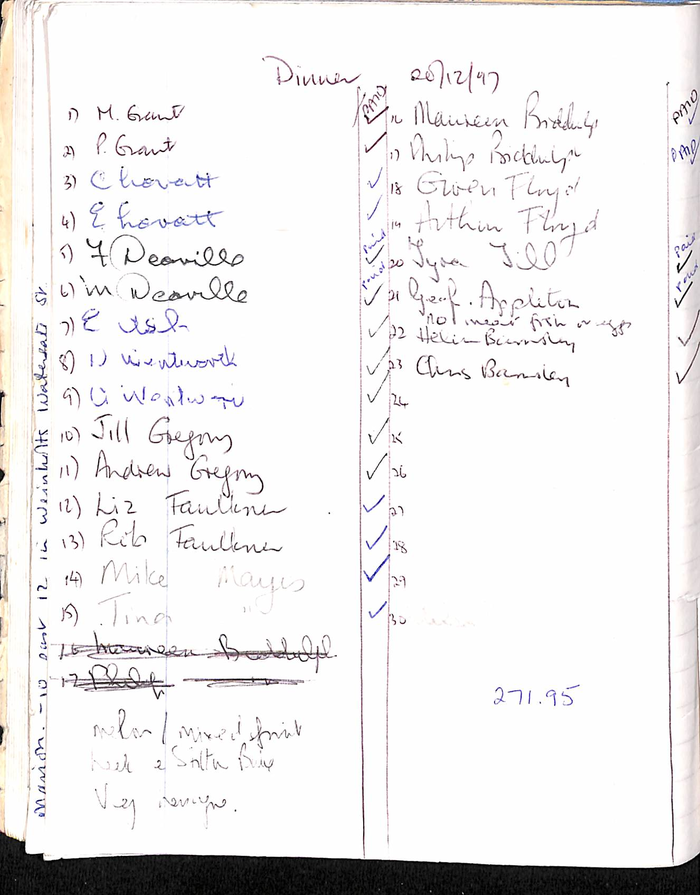 Dinner 20/12/97
PAID
1) M. Grant
2) P. Grant
3) C hovatt
4) E hovatt
5) F Deaville
6) M Deaville
7) E
8) Wentworth
9)
10) Jill Gregory
11) Andrew Gregory
12) Liz Faulkner
13) Rob Faulkner
14) Mike Mayes
15) Tina "
16 Maureen Biddulph
17 Philip "
melon / mixed fruit
Leek &
Veg
16 Maureen Biddulph
17 Philip Biddulph
18 Gwen Floyd
19 Arthur Floyd
20 Till
21 Geof. Appleton
no meat fish or eggs
22 Helen Barnsley
23 Chris Barnsley
24
25
26
27
28
29
30
271.95
PAID
PAID
Paid
Paid
Paid
Paid
Marion - 10 past 12 in Weinholts Watergate St